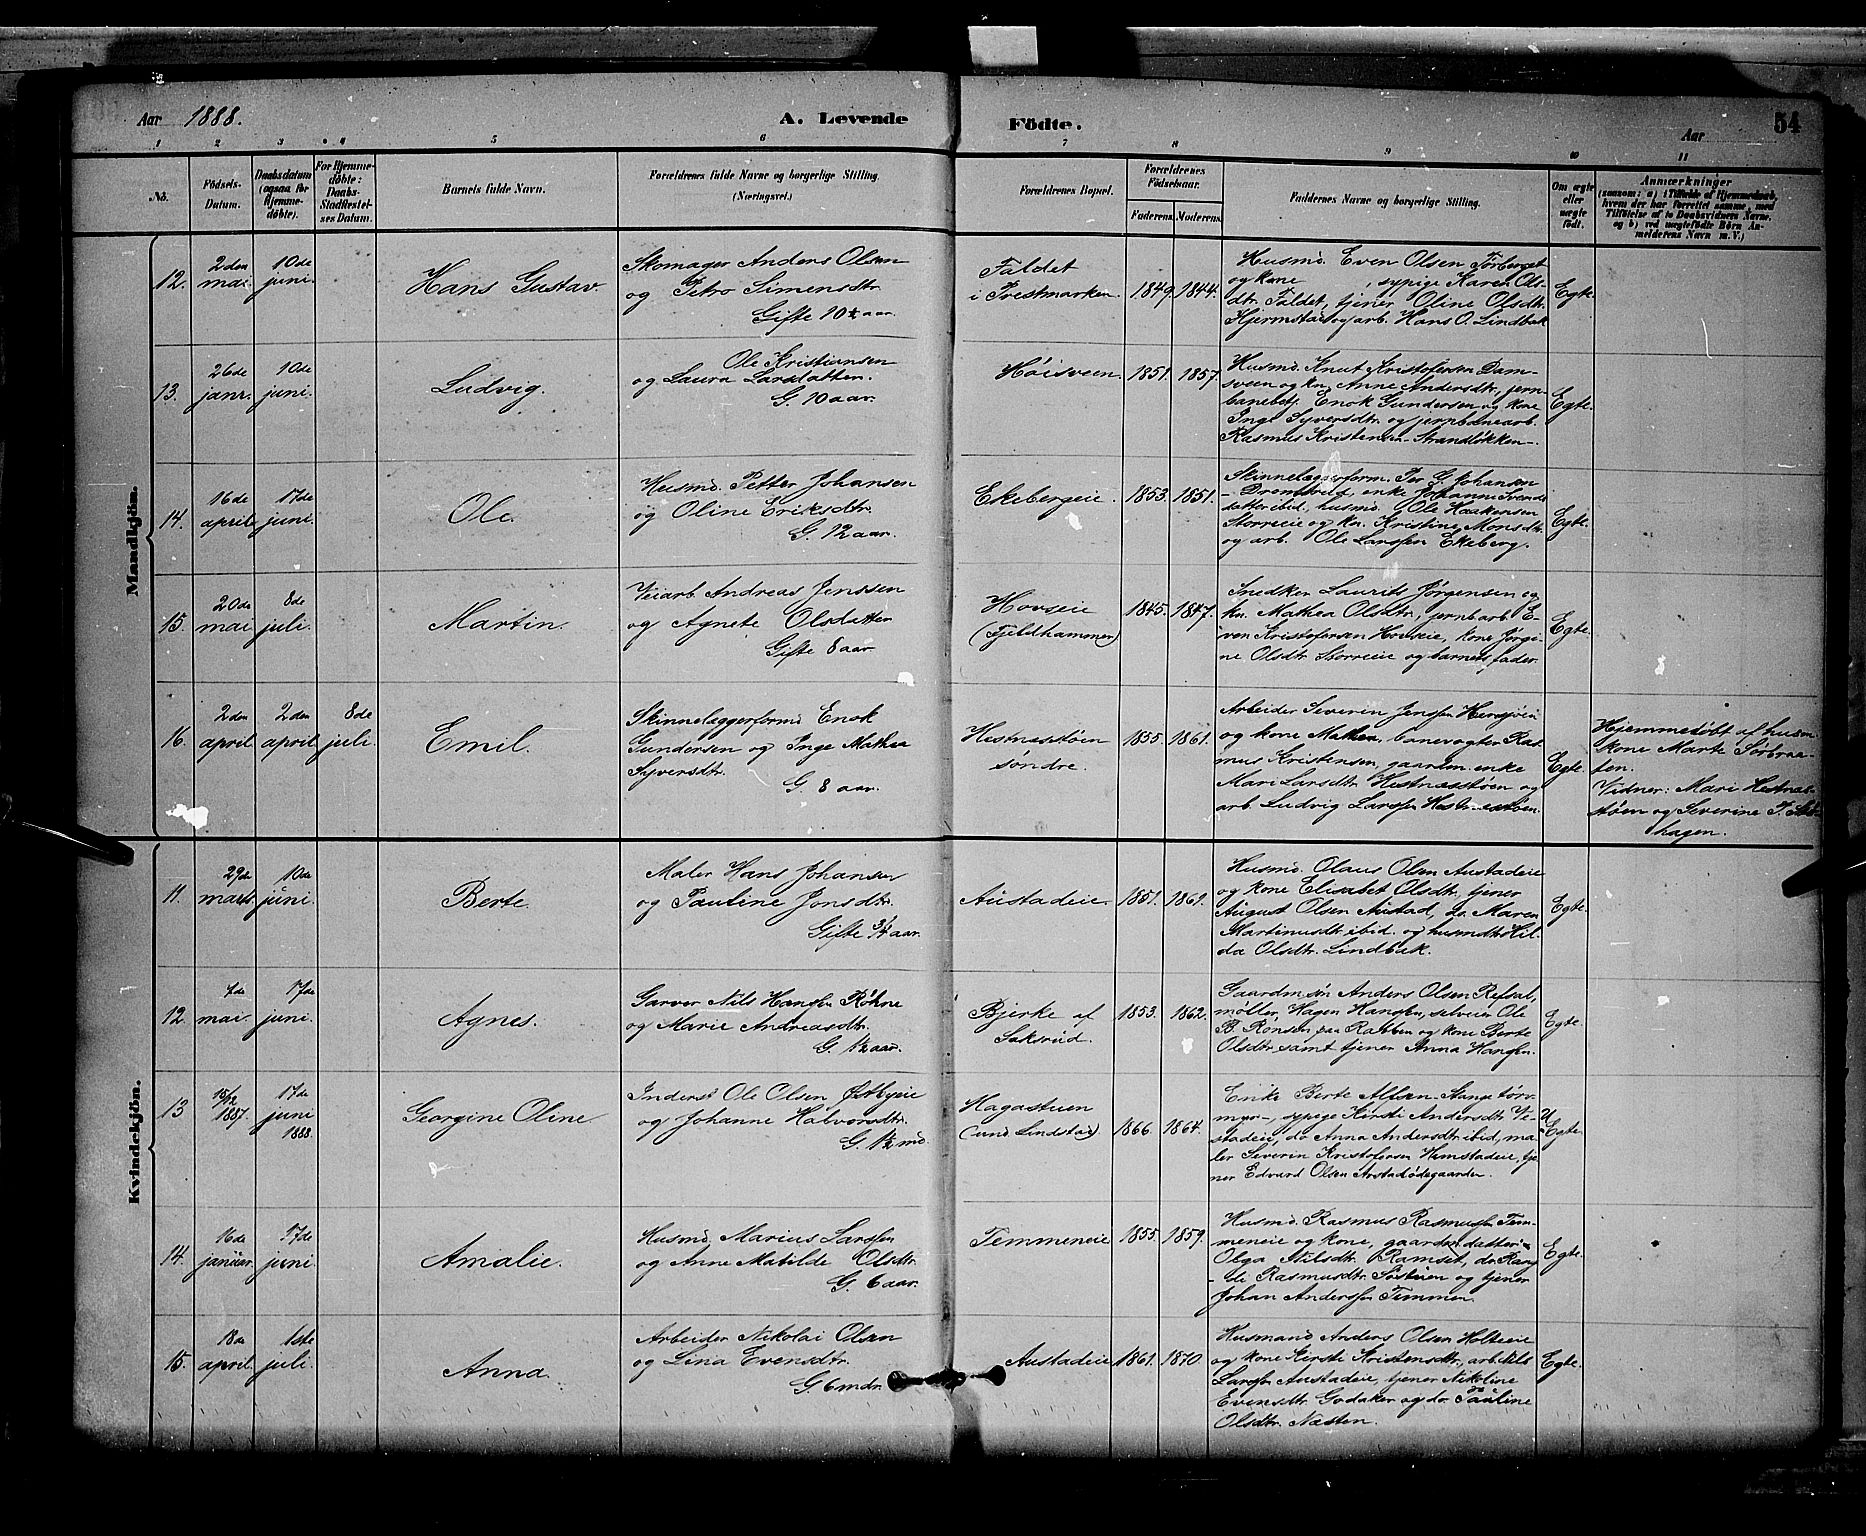 Aar 1888. A. Levende Födte. Aar 54
1 2 3 4 5 6 7 8 9 10 11
No.
Födsels-Datum.
Daabsdatum (ogsaa for Hjemmedöbte).
For Hjemmedöbte: Daabs-Stadfæstelses Datum.
Barnets fulde Navn.
Forældrenes fulde Navne og borgerlige Stilling. (Næringsvei.)
Forældrenes Bopæl.
Forældrenes Födselsaar.
Faderens. Moderens.
Faddernes Navne og borgerlige Stilling.
Om ægte eller uægte födt.
Anmærkninger
(saasom: a) i Tilfælde af Hjemmedaab, hvem der har forrettet samme, med Tilföielse af to Daabsvidners Navne, og b) ved uægtefödte Börn Anmelderens Navn m. V.)
Mandkjön.
12. 2den mai 10de juni.
Hans Gustav
Skomager Anders Olsen
og Petro Simensdtr.
Gifte 10½ aar.
Faldet
i Prestmarken
1849. 1844.
Husmd. Even Olsen Torberget
og kone , sypige Karen Ols-
dtr. Faldet, tjener Oline Olsdtr.
Hjermstad og arb. Hans O. Lindbak
Egte.
13. 26de janr. 10de juni.
Ludvig.
Ole Kristiansen
og Laura Larsdatter.
G. 10 aar.
Høisveen 1851. 1857.
Husmd. Knut Kristofersen Dam-
sveen og kn. Anne Andersdtr, jern-
banebetj. Enok Gundersen og kone
Inge Syversdtr og jernbanearb.
Rasmus Kristensen Strandløkken
Egte.
14. 16de april 17de juni.
Ole.
Husmd. Petter Johansen
og Oline Eriksdtr.
G. 12 aar.
Ekebergeie. 1853. 1851.
Skinnelæggerform. Per G. Johansen
, enke Johanne Svends-
datter ibid, husmd. Ole Haakensen
Storreeie og kn. Kristine Monsdtr.
og arb. Ole Larssen Ekeberg.
Egte.
15. 20de mai 8de juli.
Martin.
Veiarb Andreas Jenssen
og Agnete Olsdatter
Gifte 8 aar.
Hovseie
(Fjeldhammer)
1845. 1847.
Snedker Laurits Jørgensen og
kn. Mathea Olsdtr, jernb arb E-
ven Kristofersen Hovseie, kone Jørgi-
ne Olsdtr. Storreeie og barnets fader.
Egte.
16. 2den april 2den april 8de juli
Emil.
Skinnelæggerformd Enok
Gundersen og Inge Mathea
Syversdtr.
G. 8 aar.
Hestnæsstøen
søndre.
1855. 1861.
Arbeider Severin Jenssen
og kone Mathea, banevogter Ras-
mus Kristensen, gaardm. enke
Mari Larsdtr. Hestnæsstøen og
arb Ludvig Larssen Hestnæsstøen.
Egte.
Hjemmedøbt af husm
kone Marte Sørbraa-
ten.
Vidner: Mari Hestnæs-
støen og Severine P.
hagen.
Kvindekjön.
11. 29de marts 10de juni
Berte.
Maler Hans Johansen
og Pauline Jonsdtr.
Gifte 3/4 aar.
Austadeie 1851. 1861.
Husmd. Olaus Olsen Austadeie
og kone Elisabet Olsdtr, tjener
August Olsen Austad, do. Maren
Martinusdtr ibid. og husmdtr. Hil-
da Olsdtr. Lindbak.
Egte.
12. 7de mai. 17de juni.
Agnes.
Garver Nils Hansen Røhne
og Marie Andreasdtr.
G. 1½ aar.
Bjerke af
Saksrud.
1853. 1862.
Gaardmsøn Anders Olsen Refsal,
møller Hagen Hanssen, selveier Ole
B. Ronsen paa Rabben og kone Berte
Olsdtr, samt tjener Anna Hansen.
Egte.
13 15/12 1887. 17de juni 1888.
Georgine Oline
Inderst Ole Olsen Østbyeie
og Johanne Halvorsdtr.
G. 1½ md.
Hagastuen
(und. Lindstad)
1866. 1864.
Enke Berte Alfsen Stangetorv-
myr, sypige Kirsti Andersdtr. Ve-
stadeie, do Anna Andersdtr ibid, ma-
ler Severin Kristofersen Himstadeie, tje-
ner Edvard Olsen Arstadødegaarden
U-Egte.
14. 16de januar. 17de juni.
Amalie.
Husmd. Marius Larssen
og Anne Matilde Olsdtr
G. 6 aar.
Temmeneie 1855. 1859.
Husmd. Rasmus Rasmussen Tem-
meneie og kone, gaardm. datter
Olga Nilsdtr. Ramset, do Rag-
Rasmusdtr. og tjener
Johan Anderssen Temmen.
Egte.
15. 18de april. 1ste juli.
Anna.
Arbeider Nikolai Olsen
og Lina Evensdtr.
G. 6 mdr.
Austadeie 1861. 1870.
Husmand Anders Olsen Holteeie
og kone Kirsti Kristensdtr, arb. Nils
Larssen Austadeie, tjener Nikoline
Evensdtr Godaker og do. Pauline
Olsdtr. Næsten.
Egte.